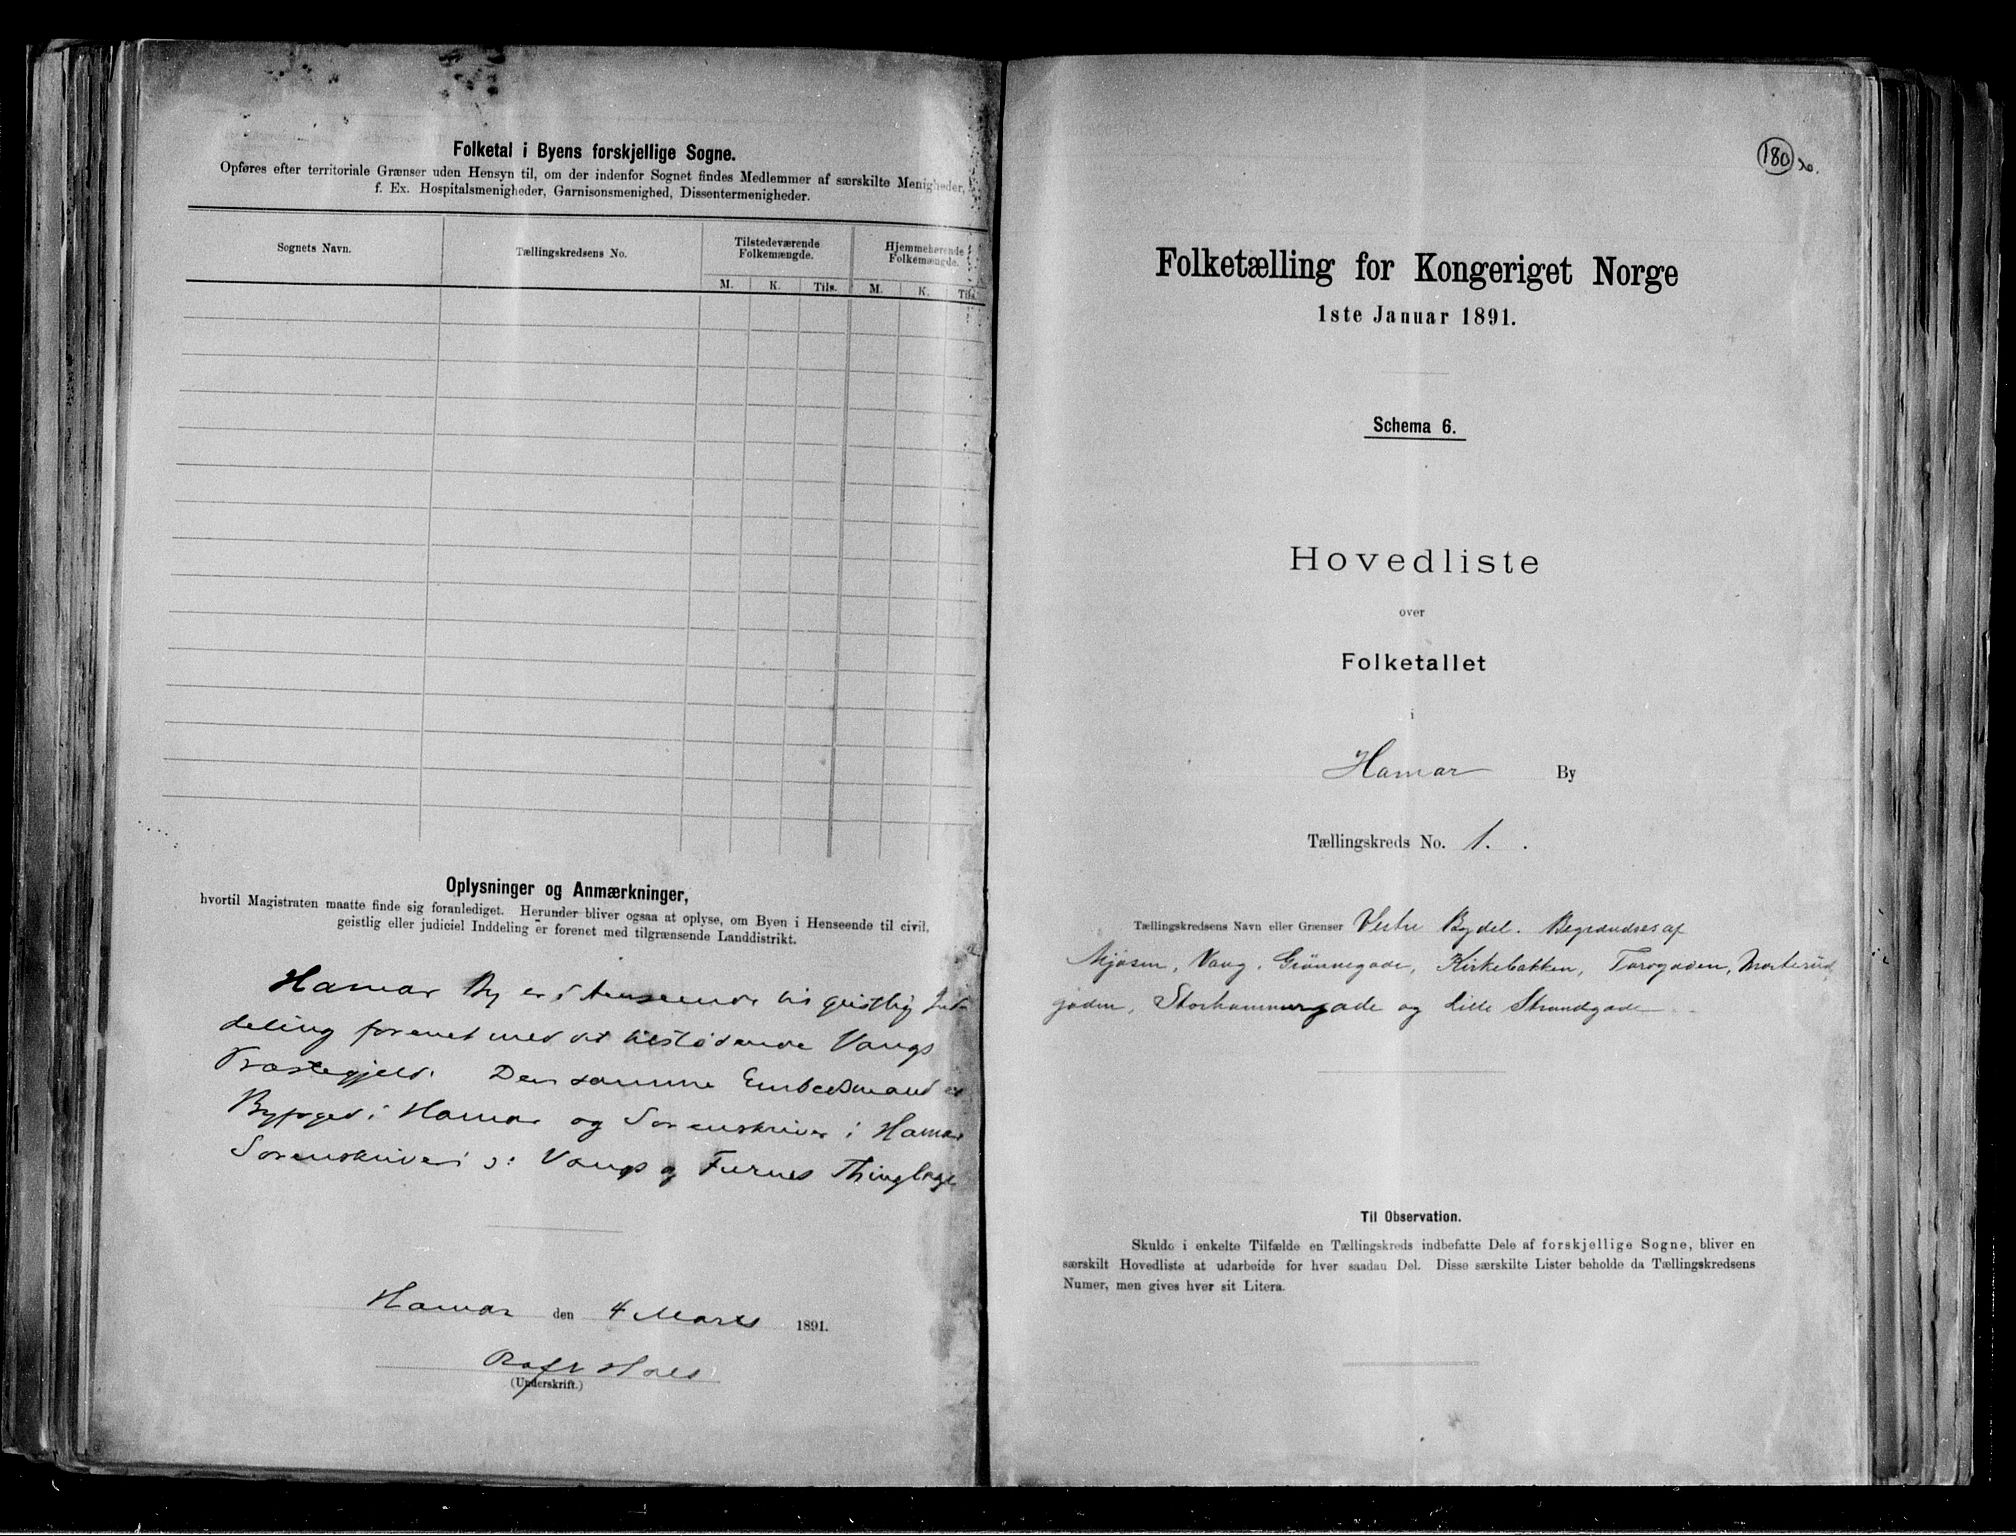 Folketal i Byens forskjellige Sogne.
Opføres efter territoriale Grænser uden Hensyn til, om der indenfor Sognet findes Medlemmer af særskilte Menigheder,
f. Ex. Hospitalsmenigheder, Garnisonsmenighed, Dissentermenigheder.
Sognets Navn. Tællingskredsens No. Tilstedeværende Folkemængde. Hjemmehørende Folkemængde.
M. K. Tils. M. K. Tils.
Oplysninger og Anmærkninger,
hvortil Magistraten maatte finde sig foranlediget. Herunder bliver ogsaa at oplyse, om Byen i Henseende til civil,
geistlig eller judiciel Inddeling er forenet med tilgrænsende Landdistrikt.
Hamar By er i Henseende til geistlig Ind-
deling forenet med det tilstødende Vangs
Præstegjeld. Den samme Embedsmand er
Byfoged i Hamar og Sorenskriver i Hamar
Sorenskriveri ɔ: Vangs og Furnes Thinglage
Hamar den 4 Marts 1891.
Hoel
(Underskrift.)
180
Folketælling for Kongeriget Norge
1ste Januar 1891.
Schema 6.
Hovedliste
over
Folketallet
i
Hamar By
Tællingskreds No. 1.
Tællingskredsens Navn eller Grænser Vestre Bydel. Begrændses af
Mjøsen, Vang, Grønnegade, Kirkebakken, Torvgaden, Morterud
gaden, Storhammergade og Lille Strandgade
Til Observation.
Skulde i enkelte Tilfælde en Tællingskreds indbefatte Dele af forskjellige Sogne, bliver en
særskilt Hovedliste at udarbeide for hver saadan Del. Disse særskilte Lister beholde da Tællingskredsens
Numer, men gives hver sit Litera.